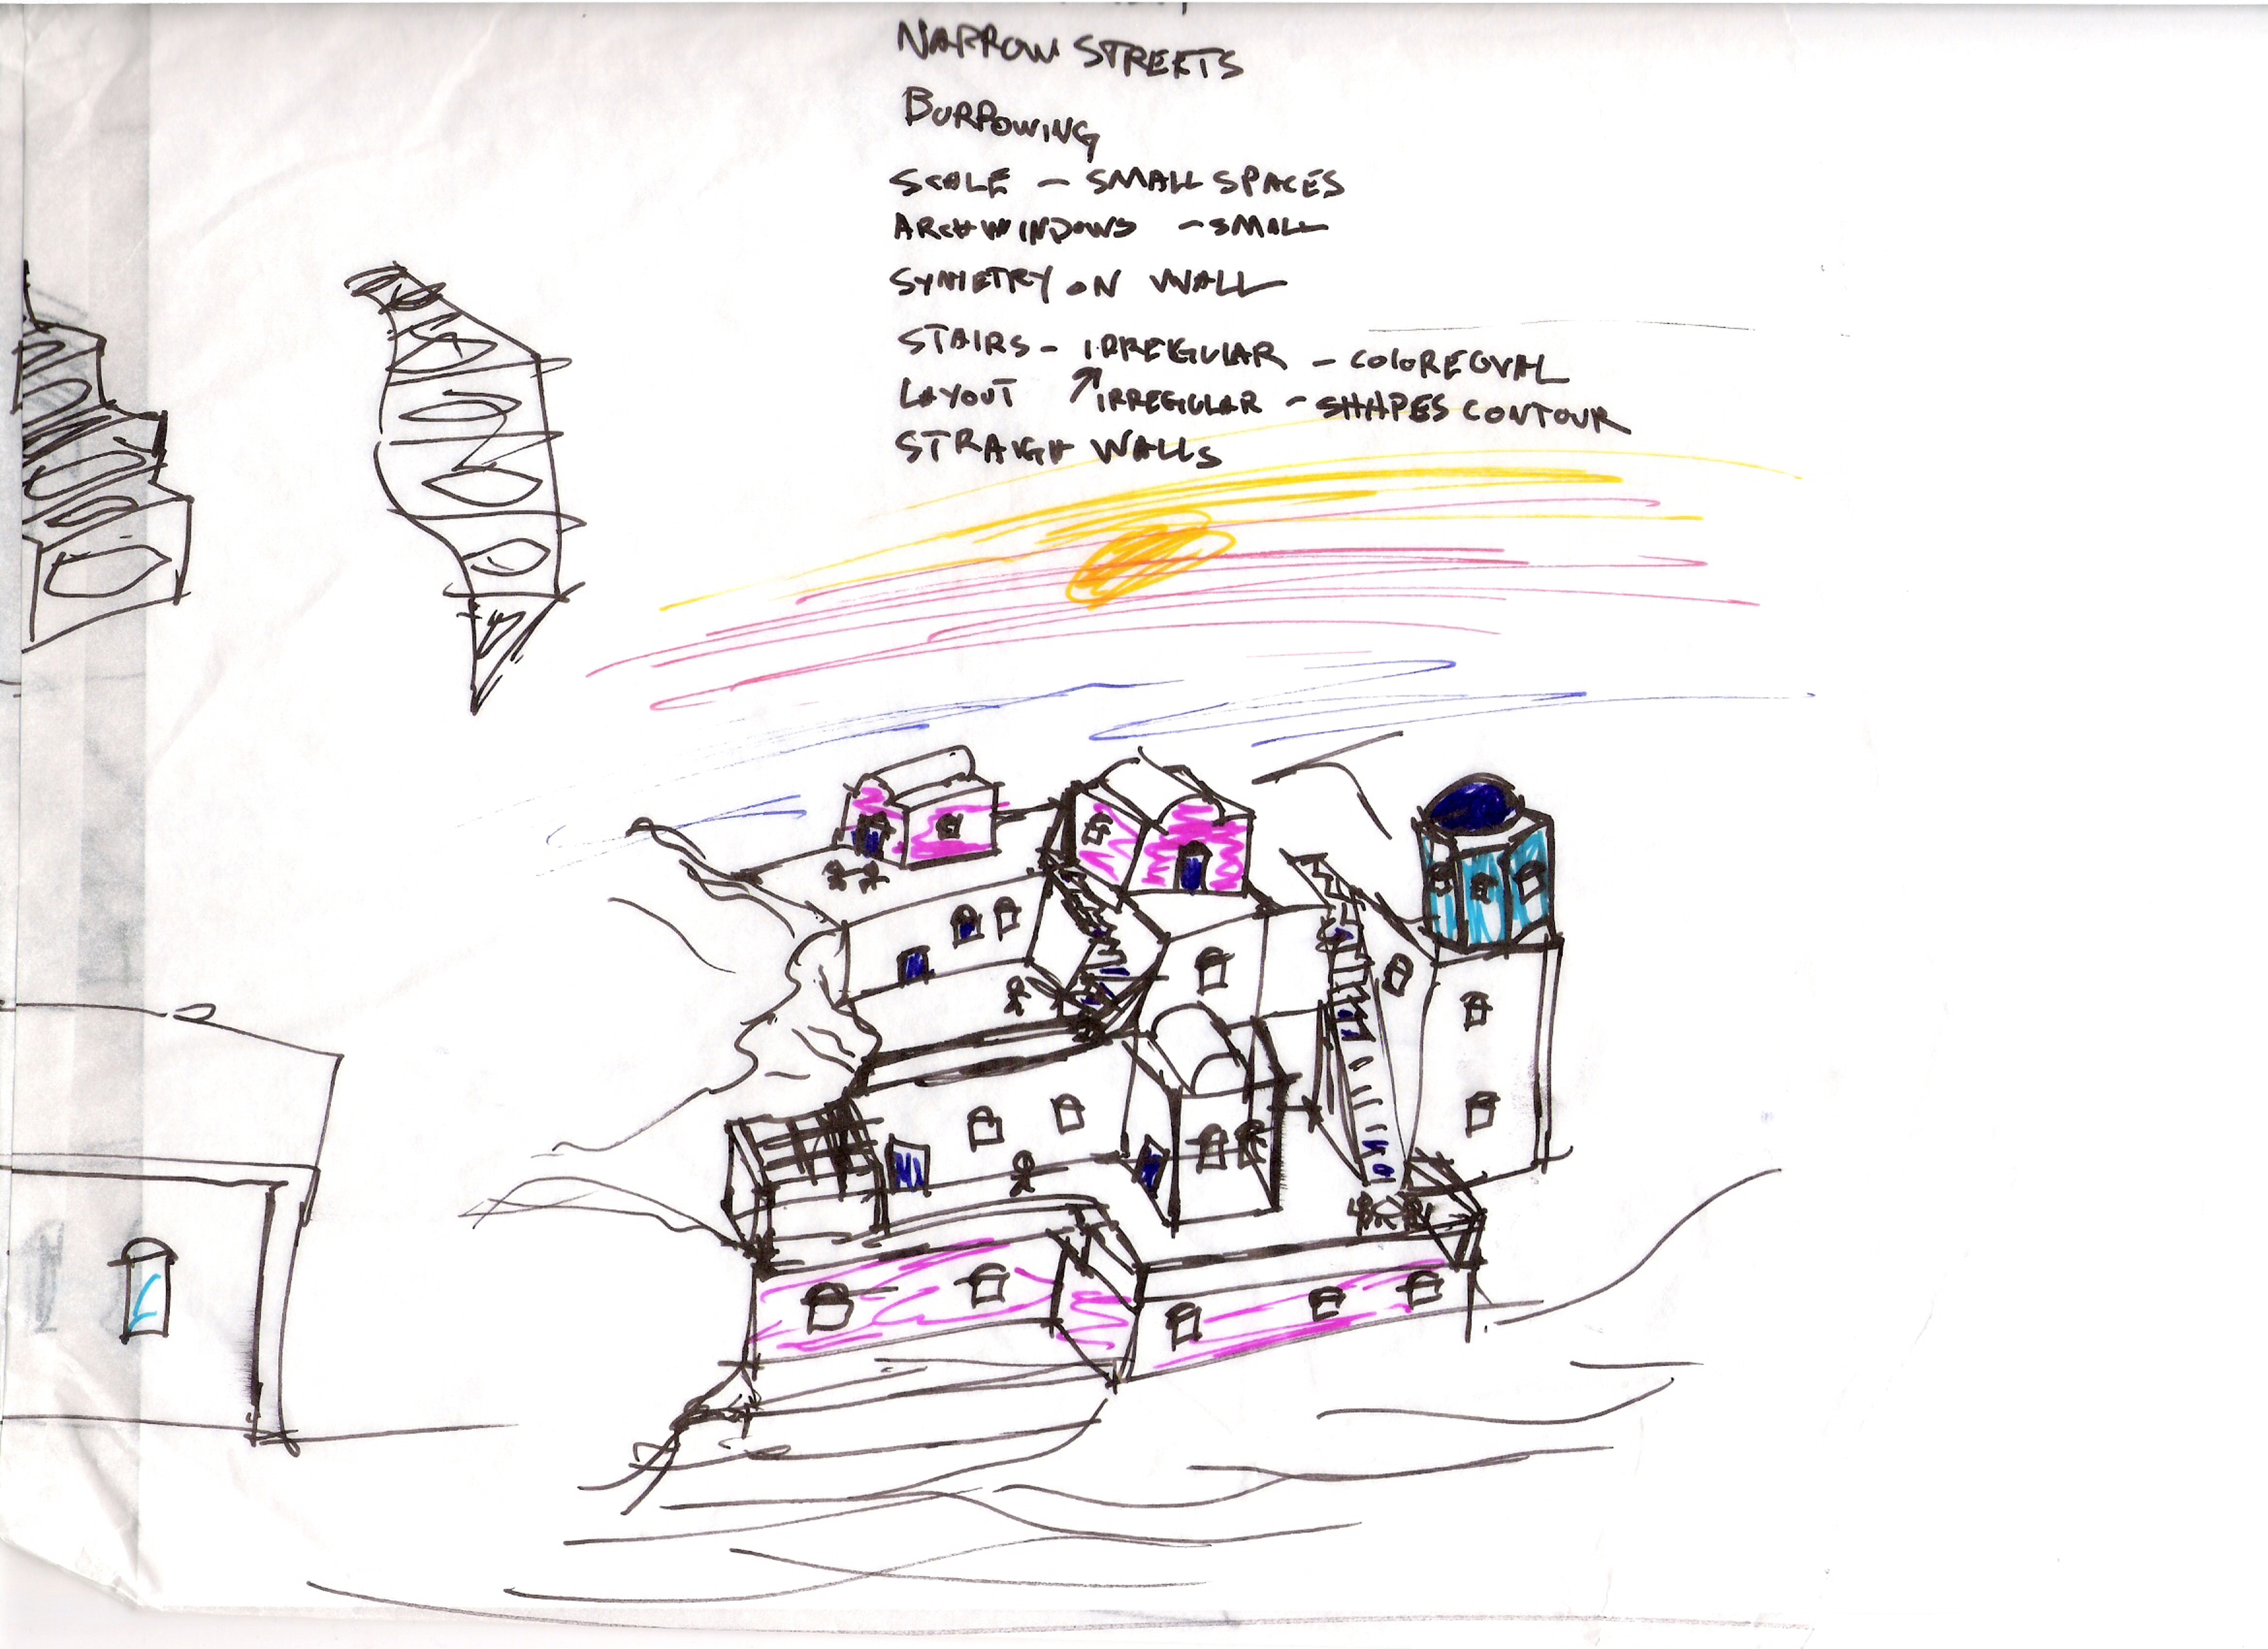 NARROW STREETS
BURROWING
SCALE - SMALL SPACES
ARCH WINDOWS - SMALL
SYMETRY ON WALL
STAIRS - IRREGULAR -
LAYOUT ↗ IRREGULAR - SHAPES CONTOUR
STRAIGH WALLS